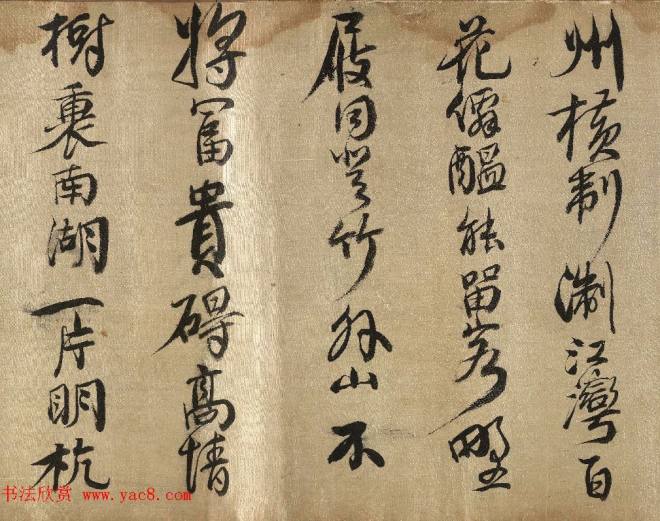 州横制淛江灣百
花僊醖能留客野
屐同登竹外山不
将富貴碍高情
樹裏南湖一片明杭
书法欣赏 www.yac8.com